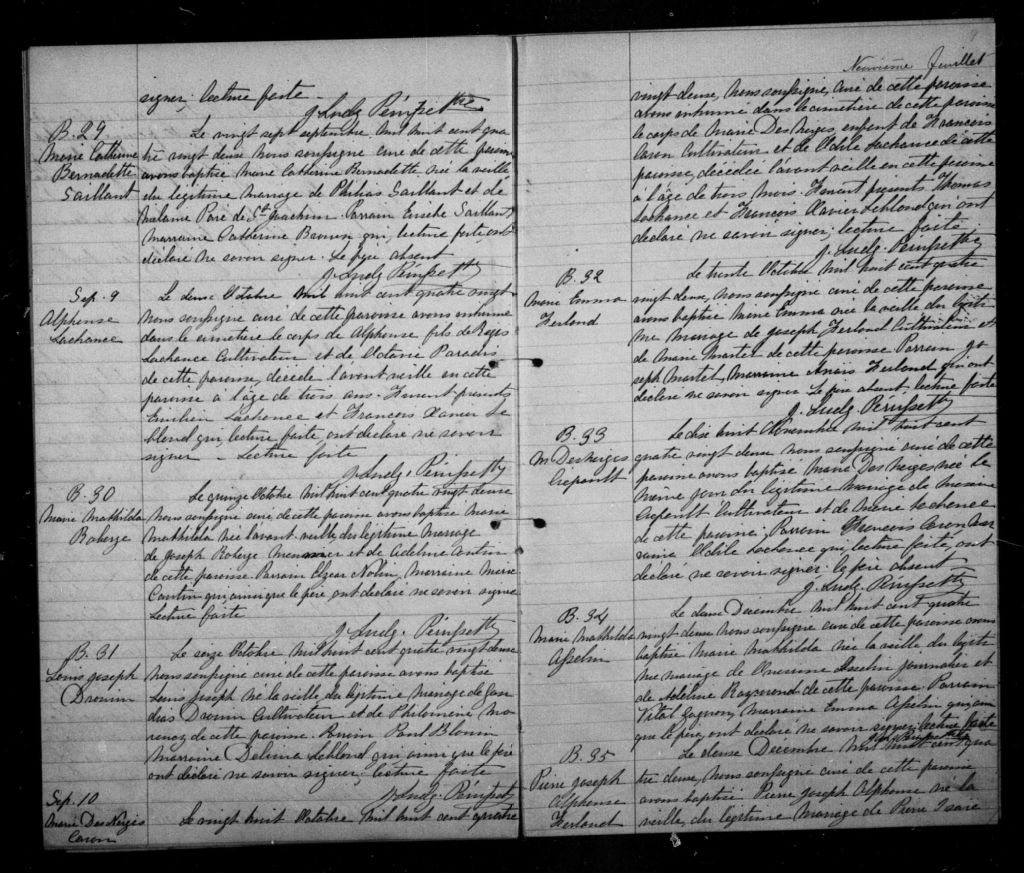 signer, lecture faite
J. Ludg. Pérusse Ptre
B. 29
Marie Catherine
Bernadette
Gaillant
Le vingt sept septembre mil huit cent qua
tre vingt douze nous soussigné curé de cette paroisse
avons baptisé Marie Catherine Bernadette née la veille
du légitime mariage de Philias Gaillant et de
Malaine Paré de St Joachim. Parrain Eusèbe Gaillant
Marraine Catherine Brown qui, lecture faite, ont
déclaré ne savoir signer. Le père absent
Sep. 9
Alphonse
Lachance
Le douze Octobre mil huit cent quatre vingt
nous soussigné curé de cette paroisse avons inhumé
dans le cimetière le corps de Alphonse fils de Régis
Lachance Cultivateur et de Octavie Paradis
de cette paroisse, décédé l'avant veille en cette
paroisse à l'âge de trois ans. Furent présents
Emilien Lachance et François Xavier Le
blond qui, lecture faite, ont déclaré ne savoir
signer - Lecture faite
B. 30
Marie Mathilda
Roberge
Le quinze Octobre mil huit cent quatre vingt douze
nous soussigné curé de cette paroisse avons baptisé Marie
Mathilda née l'avant-veille du légitime mariage
de Joseph Roberge et de Adeline Cantin
de cette paroisse. Parrain Elzear Nolin, Marraine Marie
Cantin qui, ainsi que le père ont déclaré ne savoir signer
Lecture faite
B. 31
Louis Joseph
Drouin
Le seize Octobre mil huit cent quatre vingt douze
nous soussigné curé de cette paroisse avons baptisé
Louis Joseph né la veille du légitime mariage de
Drouin Cultivateur et de Philomène Mo
rency de cette paroisse. Parrain Paul Blouin
Marraine Delima Leblond qui ainsi que le père
ont déclaré ne savoir signer; lecture faite
Sep. 10
Marie Des Neiges
Caron
Le vingt huit Octobre mil huit cent quatre
Neuvième feuillet
vingt douze, nous soussigné, curé de cette paroisse
avons inhumé dans le cimetière de cette paroisse
le corps de Marie Des Neiges, enfant de François
Caron Cultivateur et de Odile Lachance de cette
paroisse, décédée l'avant veille en cette paroisse
à l'âge de trois mois. Furent présents Thomas
Lachance et François Xavier Leblond qui ont
déclaré ne savoir signer; lecture faite
B. 32
Marie Emma
Ferland
Le trente Octobre mil huit cent quatre
vingt douze, nous soussigné curé de cette paroisse
avons baptisé Marie Emma née la veille du légiti
me mariage de Joseph Ferland Cultivateur et
de Marie Martel de cette paroisse. Parrain Jo
seph Martel, Marraine Anaïs Ferland qui ont
déclaré ne savoir signer. Le père absent, lecture faite
B. 33
M. Des Neiges
Crépault
Le dix huit Novembre mil huit cent
quatre vingt douze nous soussigné curé de cette
paroisse avons baptisé Marie Des Neiges née le
même jour du légitime mariage de
Crépault Cultivateur et de Marie Lachance
de cette paroisse; Parrain François Caron Mar
raine Odile Lachance qui, lecture faite, ont
déclaré ne savoir signer. Le père absent
B. 34
Marie Mathilda
Asselin
Le douze Décembre mil huit cent quatre
vingt douze nous soussigné curé de cette paroisse avons
baptisé Marie Mathilda née la veille du légiti
me mariage de Onésime Asselin journalier et
de Adeline Raymond de cette paroisse. Parrain
Vital Gagnon, marraine Emma Asselin qui, ainsi
que le père, ont déclaré ne savoir signer, lecture faite
B. 35
Pierre Joseph
Alphonse
Ferland
Le douze Décembre mil huit cent qua
tre douze, nous soussigné curé de cette paroisse
avons baptisé Pierre Joseph Alphonse né la
veille, du légitime mariage de Pierre Isaïe